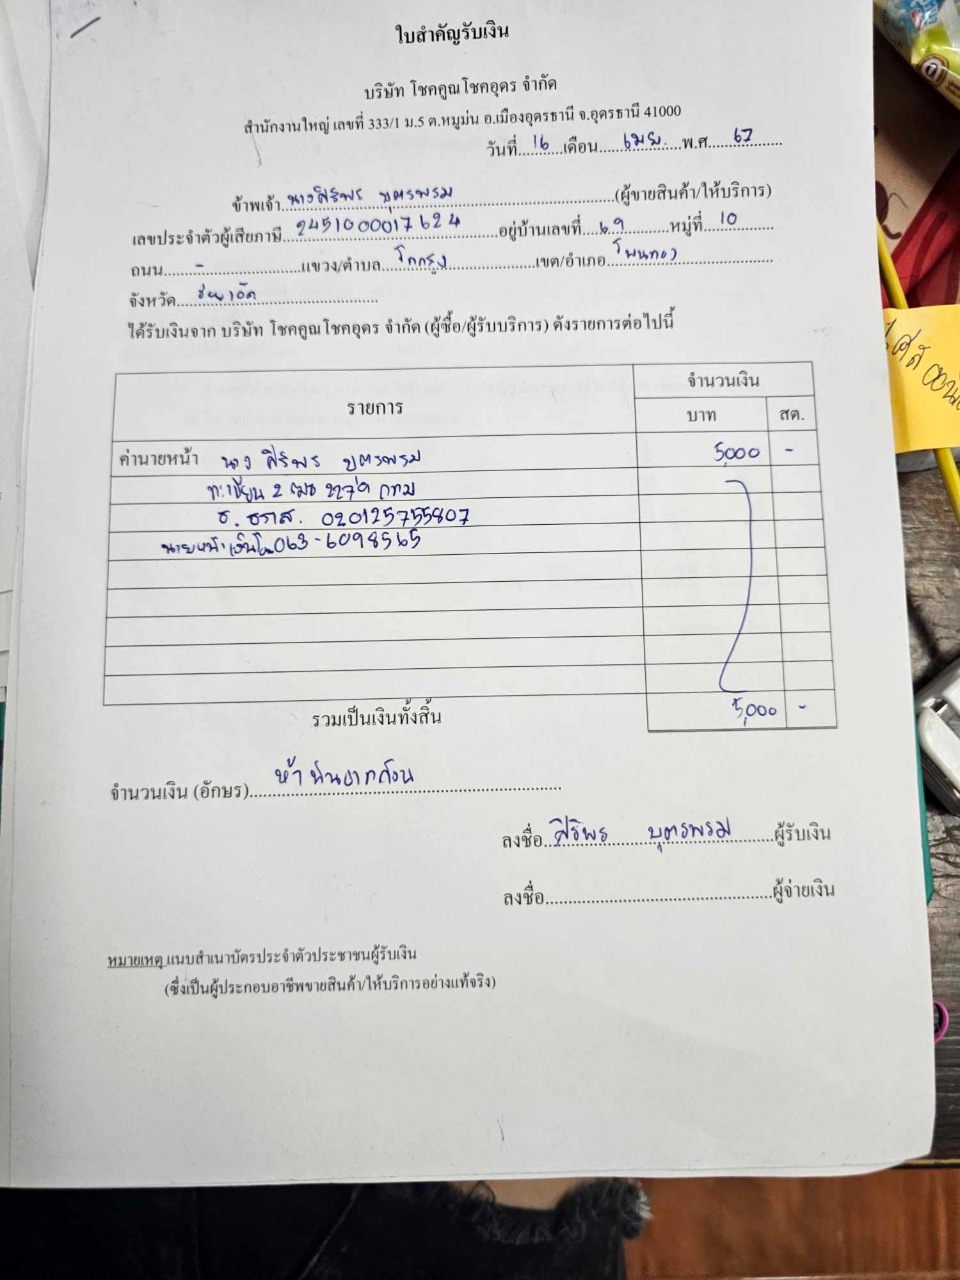 ใบสำคัญรับเงิน
บริษัท โชคคูณโชคอุดร จำกัด
สำนักงานใหญ่ เลขที่ 333/1 ม.5 ต.หมูม่น อ.เมืองอุดรธานี จ.อุดรธานี 41000
วันที่ 16 เดือน เมย. พ.ศ. 67
ข้าพเจ้า นางศิริพร บุตรพรม (ผู้ขายสินค้า/ให้บริการ)
เลขประจำตัวผู้เสียภาษี 2451000017624 อยู่บ้านเลขที่ 69 หมู่ที่ 10
ถนน - แขวง/ตำบล โคกกรุง เขต/อำเภอ โพนทอง
จังหวัด ร้อยเอ็ด
ได้รับเงินจาก บริษัท โชคคูณโชคอุดร จำกัด (ผู้ซื้อ/ผู้รับบริการ) ดังรายการต่อไปนี้
รายการ จำนวนเงิน
บาท สต.
ค่านายหน้า นาง ศิริพร บุตรพรม 5,000 -
ทะเบียน 2 2279 กทม
ธ. ธกส. 020125755807
นายหน้า 063-6098565
รวมเป็นเงินทั้งสิ้น 5,000 -
จำนวนเงิน (อักษร) ห้าพันบาทถ้วน
ลงชื่อ ศิริพร บุตรพรม ผู้รับเงิน
ลงชื่อ ผู้จ่ายเงิน
หมายเหตุ แนบสำเนาบัตรประจำตัวประชาชนผู้รับเงิน
(ซึ่งเป็นผู้ประกอบอาชีพขายสินค้า/ให้บริการอย่างแท้จริง)